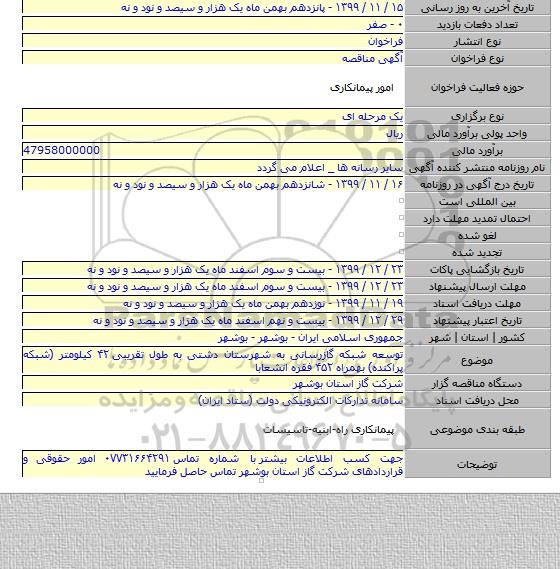 تاریخ آخرین به روز رسانی ۱۵ / ۱۱ / ۱۳۹۹ - پانزدهم بهمن ماه یک هزار و سیصد و نود و نه
تعداد دفعات بازدید ۰ - صفر
نوع انتشار فراخوان
نوع فراخوان آگهی مناقصه
حوزه فعالیت فراخوان امور پیمانکاری
نوع برگزاری یک مرحله ای
واحد پولی برآورد مالی ریال
برآورد مالی 47958000000
نام روزنامه منتشر کننده آگهی سایر رسانه ها _ اعلام می گردد
تاریخ درج آگهی در روزنامه ۱۶ / ۱۱ / ۱۳۹۹ - شانزدهم بهمن ماه یک هزار و سیصد و نود و نه
بین المللی است
احتمال تمدید مهلت دارد
لغو شده
تجدید شده
تاریخ بازگشایی پاکات ۲۳ / ۱۲ / ۱۳۹۹ - بیست و سوم اسفند ماه یک هزار و سیصد و نود و نه
مهلت ارسال پیشنهاد ۲۳ / ۱۲ / ۱۳۹۹ - بیست و سوم اسفند ماه یک هزار و سیصد و نود و نه
مهلت دریافت اسناد ۱۹ / ۱۱ / ۱۳۹۹ - نوزدهم بهمن ماه یک هزار و سیصد و نود و نه
تاریخ اعتبار پیشنهاد ۲۹ / ۱۲ / ۱۳۹۹ - بیست و نهم اسفند ماه یک هزار و سیصد و نود و نه
کشور | استان | شهر جمهوری اسلامی ایران - بوشهر - بوشهر
موضوع توسعه شبکه گازرسانی به شهرستان دشتی به طول تقریبی ۴۲ کیلومتر (شبکه
پراکنده) بهمراه ۴۵۲ فقره انشعابا
دستگاه مناقصه گزار شرکت گاز استان بوشهر
محل دریافت اسناد سامانه تدارکات الکترونیکی دولت (ستاد ایران)
طبقه بندی موضوعی پیمانکاری راه-ابنیه-تاسیسات
توضیحات جهت کسب اطلاعات بیشتر با شماره تماس ۰۷۷۳۱۶۶۴۲۹۱ امور حقوقی و
قراردادهای شرکت گاز استان بوشهر تماس حاصل فرمایید
۰۲۱-۸۸۳۴۹۶۷۰-۵